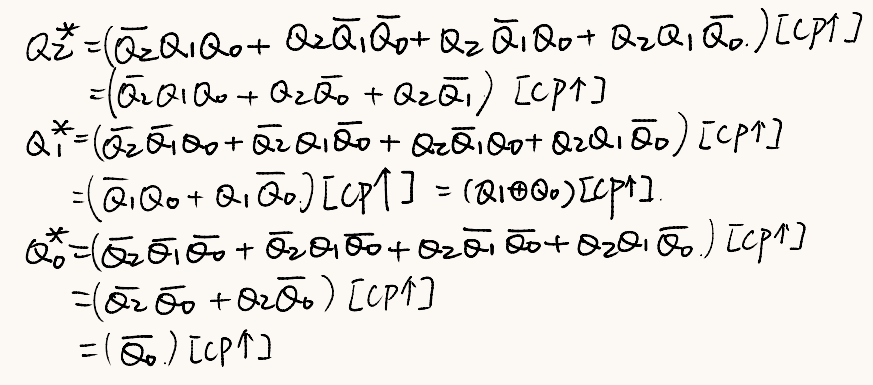 Q₂* = (Q̅₂Q₁Q₀ + Q₂Q̅₁Q̅₀ + Q₂Q̅₁Q₀ + Q₂Q₁Q̅₀.)[CP↑]
= (Q̅₂Q₁Q₀ + Q₂Q̅₀ + Q₂Q̅₁) [CP↑]
Q₁* = (Q̅₂Q̅₁Q₀ + Q̅₂Q₁Q̅₀ + Q₂Q̅₁Q₀ + Q₂Q₁Q̅₀) [CP↑]
= (Q̅₁Q₀ + Q₁Q̅₀.)[CP↑] = (Q₁⊕Q₀)[CP↑].
Q₀* = (Q̅₂Q̅₁Q̅₀ + Q̅₂Q₁Q̅₀ + Q₂Q̅₁Q̅₀ + Q₂Q₁Q̅₀.) [CP↑]
= (Q̅₂Q̅₀ + Q₂Q̅₀) [CP↑]
= (Q̅₀.) [CP↑]